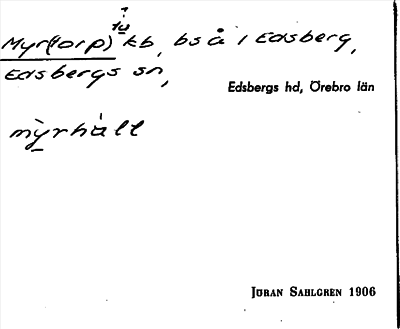 ?
tu
Myr(torp) kb, bs å i Edsberg,
Edsbergs sn,
Edsbergs hd, Örebro län
mỳrhàlt
Jöran Sahlgren 1906